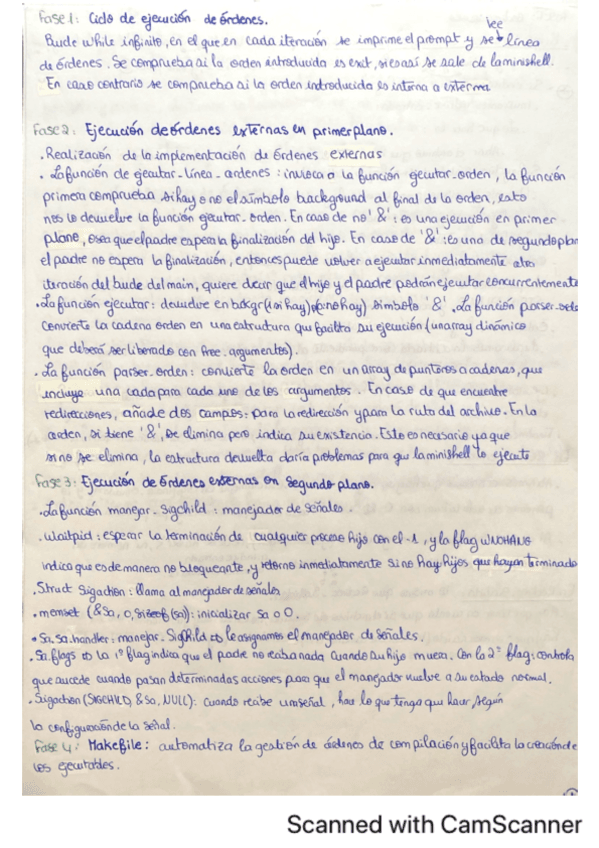 Fase 1: Ciclo de ejecución de órdenes.
Bucle while infinito, en el que en cada iteración se imprime el prompt y se lee línea
de órdenes. Se comprueba si la orden introducida es exit, si es así se sale de la minishell.
En caso contrario se comprueba si la orden introducida es interna o externa
Fase 2: Ejecución de órdenes externas en primer plano.
. Realización de la implementación de órdenes externas
. La función de ejecutar-línea-ordenes: invoca a la función ejecutar-orden, la función
primero comprueba si hay o no el símbolo background al final de la orden, esto
nos lo devuelve la función ejecutar-orden. En caso de no '&': es una ejecución en primer
plano, osea que el padre espera la finalización del hijo. En caso de '&': es una de segundo plan
el padre no espera la finalización, entonces puede volver a ejecutar inmediatamente otra
iteración del bucle del main, quiere decir que el hijo y el padre podrán ejecutar concurrentemente
. La función ejecutar: devuelve en backgr (1 si hay) (0 no hay) símbolo '&'. La función parser-orde
convierte la cadena orden en una estructura que facilita su ejecución (un array dinámico
que deberá ser liberado con free-argumentos).
. La función parser-orden: convierte la orden en un array de punteros a cadenas, que
incluye una cada para cada uno de los argumentos. En caso de que encuentre
redirecciones, añade dos campos: para la redirección y para la ruta del archivo. En la
orden, si tiene '&', se elimina pero indica su existencia. Esto es necesario ya que
si no se elimina, la estructura devuelta daría problemas para que la minishell lo ejecute
Fase 3: Ejecución de órdenes externas en segundo plano.
. La función manejar-sigchild: manejador de señales.
. Waitpid: esperar la terminación de cualquier proceso hijo con el -1, y la flag WNOHANG
indica que es de manera no bloqueante, y retorno inmediatamente si no hay hijos que hayan terminado
. Struct Sigaction: llama al manejador de señales
. memset (&sa, 0, sizeof(sa)): inicializar sa a 0.
. Sa.sa.handler: manejar-Sigchild => le asignamos el manejador de señales.
. Sa.flags => la 1º flag indica que el padre no reciba nada cuando su hijo muera. Con la 2º flag: controla
que sucede cuando pasan determinadas acciones para que el manejador vuelve a su estado normal.
. Sigaction (SIGCHILD, &Sa, NULL): cuando recibe una señal, hace lo que tenga que hacer, según
la configuración de la señal.
Fase 4: Makefile: automatiza la gestión de órdenes de compilación y facilita la creación de
los ejecutables.
Scanned with CamScanner